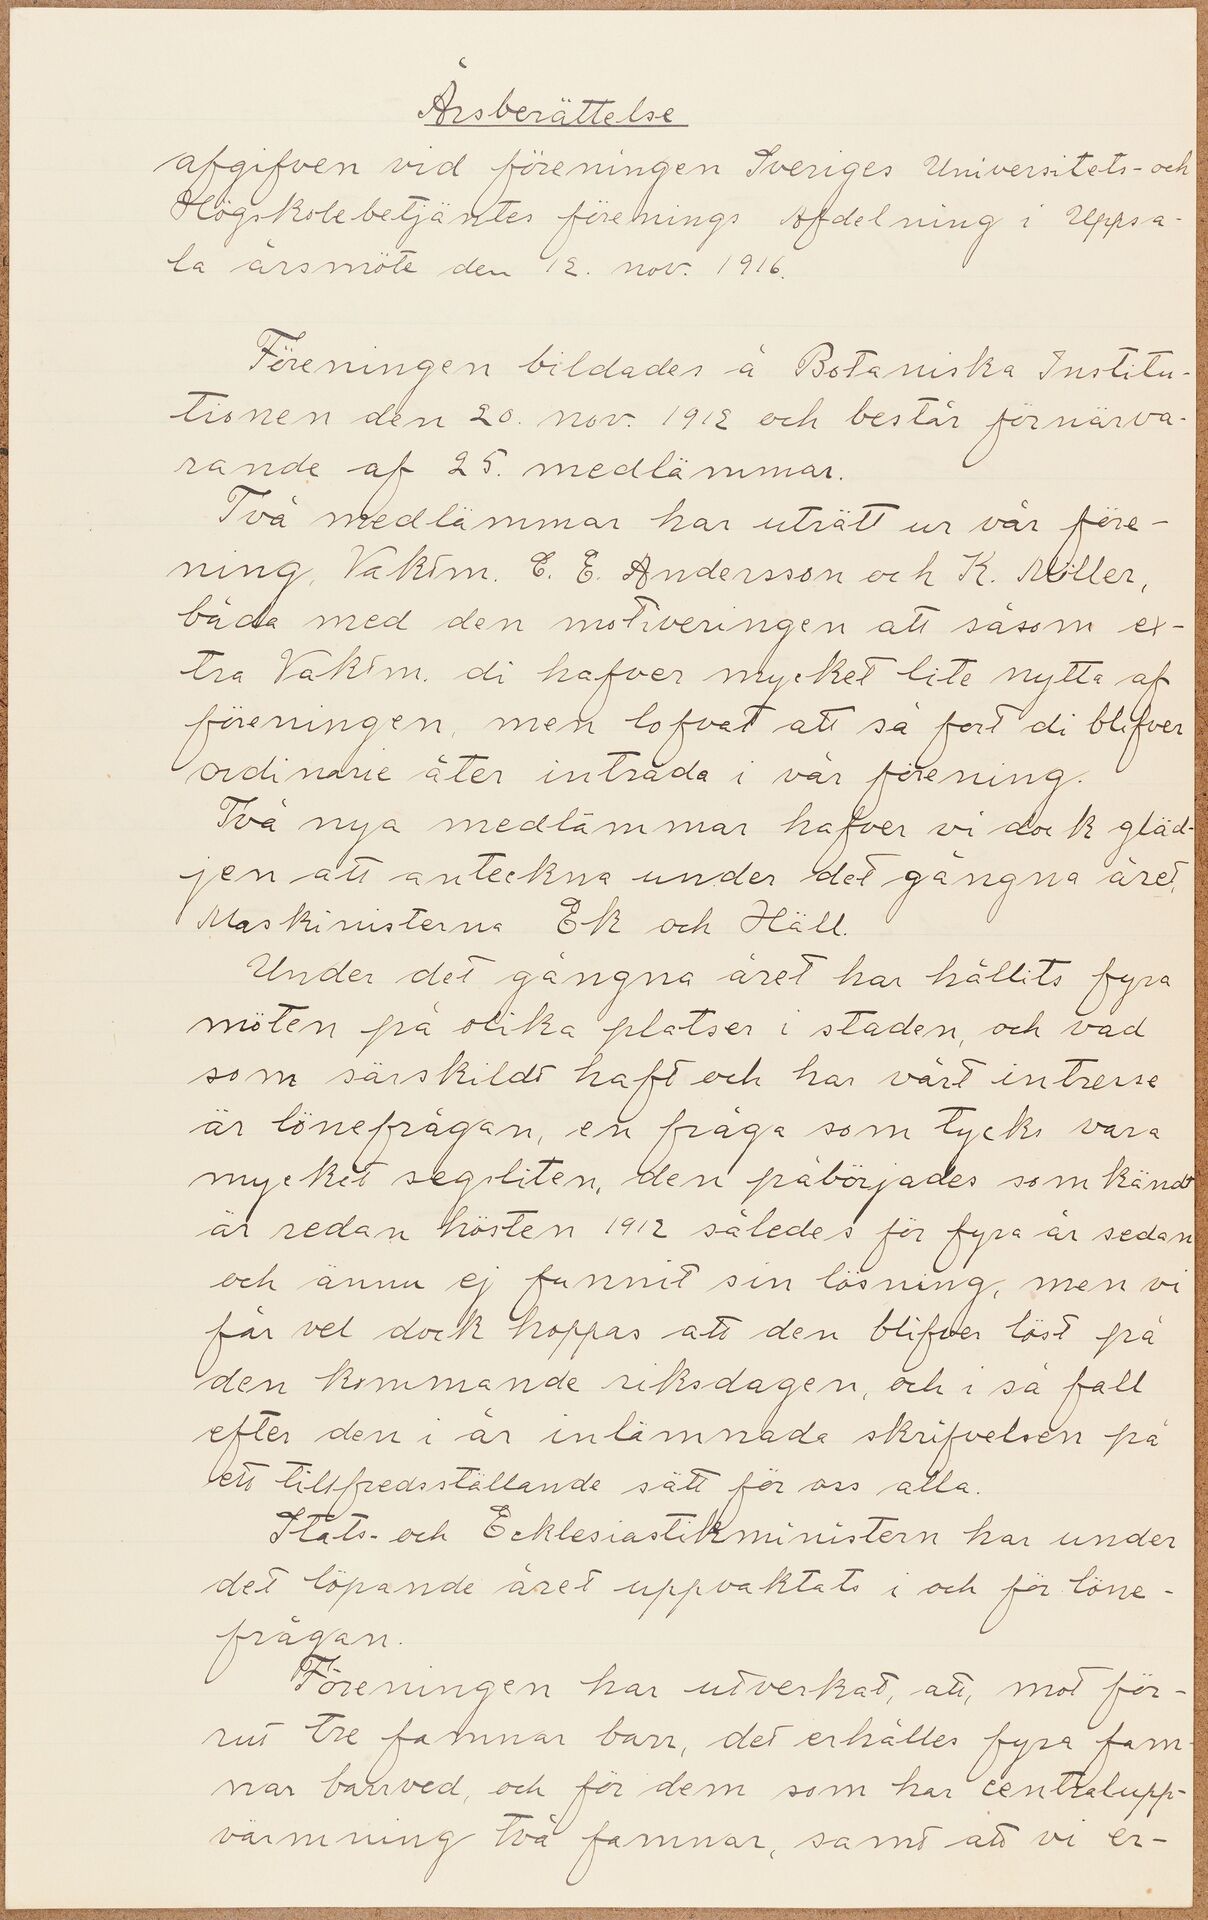 Årsberättelse
afgifven vid föreningen Sveriges Universitets- och
Högskolebetjäntes förenings Afdelning i Uppsa-
la årsmöte den 12. nov. 1916.
Föreningen bildades å Botaniska Institu-
tionen den 20. nov. 1912 och består förnärva-
rande af 25. medlämmar.
Två medlämmar har uträtt ur vår före-
ning, Vaktm. E. E. Andersson och K. Möller,
båda med den motiveringen att såsom ex-
tra Vaktm. di hafver mycket lite nytta af
föreningen, men lofvat att så fort di blifver
ordinarie åter inträda i vår förening.
Två nya medlämmar hafver vi dock gläd-
jen att anteckna under det gångna året,
Maskinisterna Ek och Häll.
Under det gångna året har hållits fyra
möten på olika platser i staden, och vad
som särskildt haft och har vårt intresse
är lönefrågan, en fråga som tycks vara
mycket segsliten, den påbörjades som kändt
är redan hösten 1912 således för fyra år sedan
och ännu ej funnit sin lösning, men vi
får vel dock hoppas att den blifver löst på
den kommande riksdagen, och i så fall
efter den i år inlämnada skrifvelsen på
ett tillfredsställande sätt för oss alla.
Stats- och Ecklesiastikministern har under
det löpande året uppvaktats i och för löne-
frågan.
Föreningen har utverkat, att, mot för-
rut tre famnar barr, det erhålles fyra fam-
nar barrved, och för dem som har centralupp-
värmning två famnar, samt att vi er-